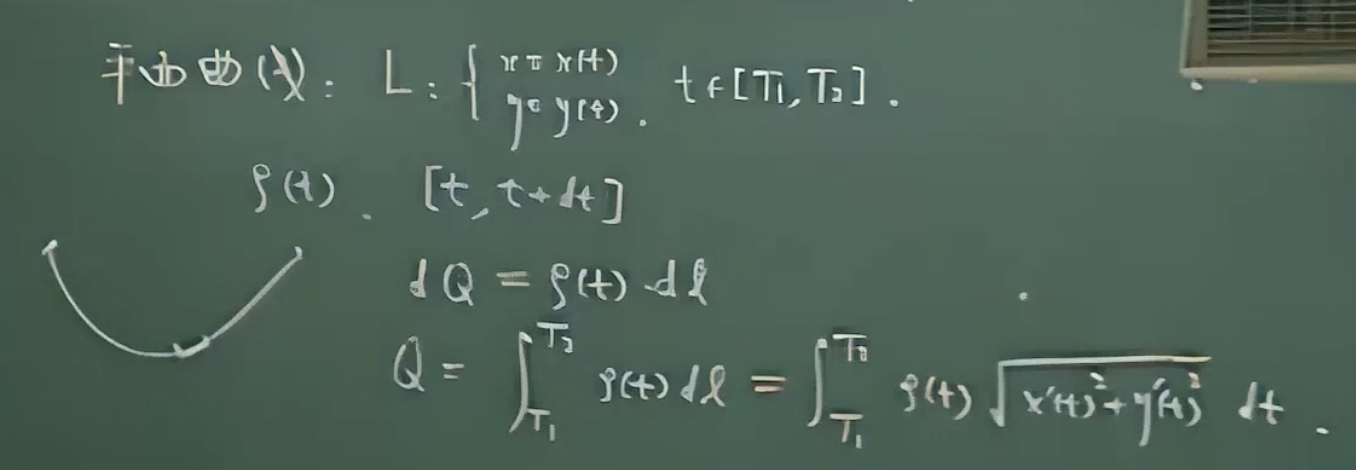 平面曲线: L: { x = x(t) y = y(t). t ∈ [T₁, T₂].
ρ(t). [t, t+dt]
dQ = ρ(t) dl
Q = ∫_{T₁}^{T₂} ρ(t) dl = ∫_{T₁}^{T₂} ρ(t) √(x'(t)² + y'(t)²) dt.